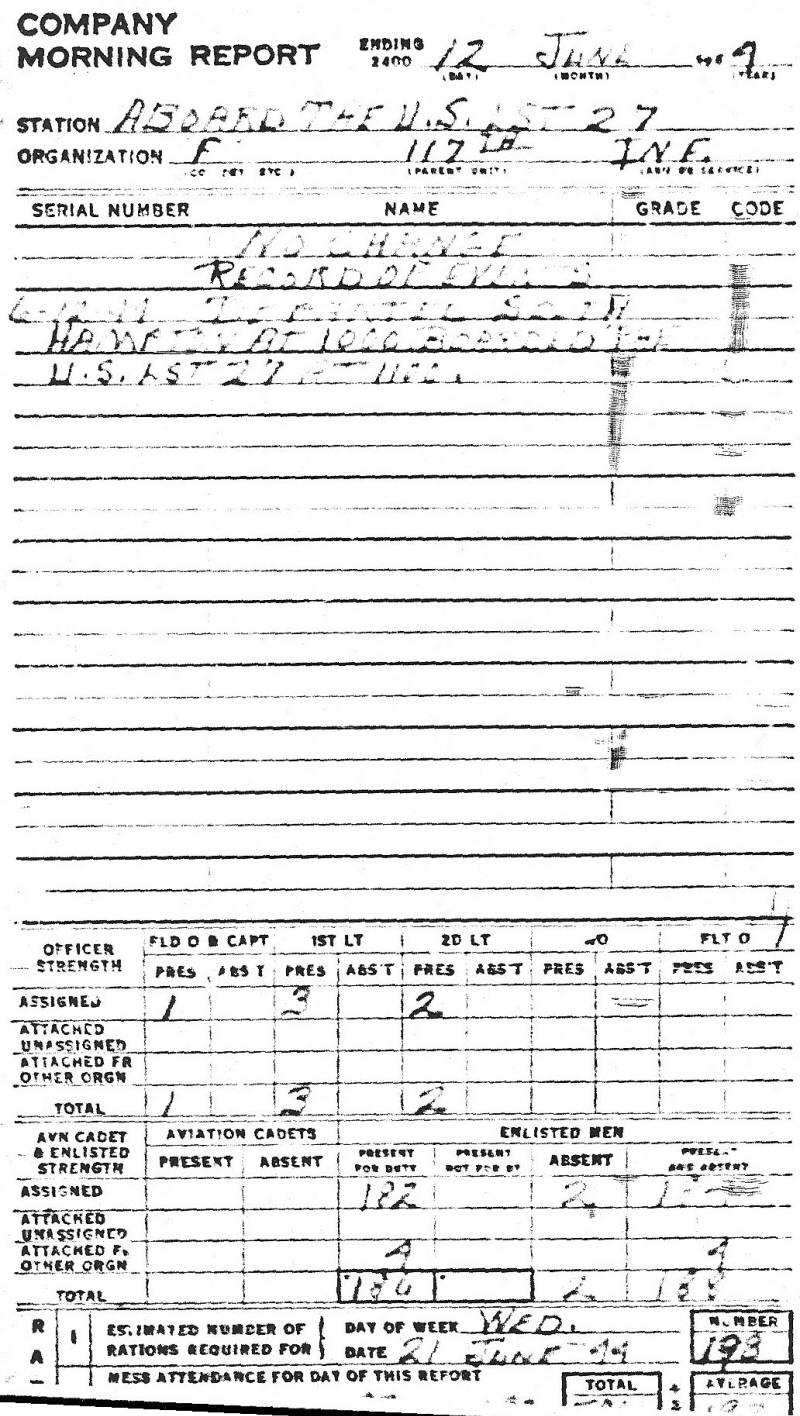 COMPANY
MORNING REPORT ENDING 2400 12 JUNE 194 4
(DAY) (MONTH) (YEAR)
STATION ABOARD THE U.S. LST 27
ORGANIZATION F 117TH INF.
(PARENT UNIT)
SERIAL NUMBER NAME GRADE CODE
NO CHANGE
RECORD OF EVENTS
6-12-44 SOUTH
HAMPTON AT 1000 BOARDED THE
U.S. LST 27 AT 1100.
OFFICER STRENGTH FLD O & CAPT 1ST LT 2D LT WO FLT O
PRES ABS'T PRES ABS'T PRES ABS'T PRES ABS'T PRES ABS'T
ASSIGNED 1 3 2
ATTACHED UNASSIGNED
ATTACHED FR OTHER ORGN
TOTAL 1 3 2
AVN CADET & ENLISTED STRENGTH AVIATION CADETS ENLISTED MEN
PRESENT ABSENT PRESENT FOR DUTY PRESENT NOT FOR DY ABSENT PRESENT AND ABSENT
ASSIGNED 182 2
ATTACHED UNASSIGNED
ATTACHED FR OTHER ORGN 4 4
TOTAL 186 2 188
R A 1 ESTIMATED NUMBER OF RATIONS REQUIRED FOR DAY OF WEEK WED. NUMBER
DATE 21 JUNE 44 193
MESS ATTENDANCE FOR DAY OF THIS REPORT TOTAL AVERAGE